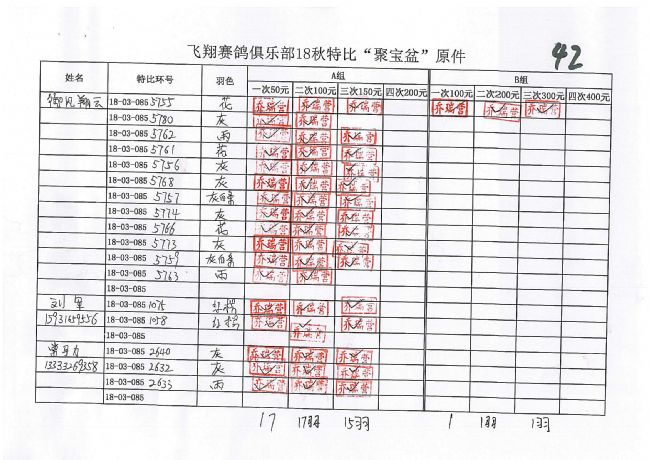 飞翔赛鸽俱乐部18秋特比“聚宝盆”原件 42
姓名 特比环号 羽色 A组 B组
一次50元 二次100元 三次150元 四次200元 一次100元 二次200元 三次300元 四次400元
18-03-085 5755 花 乔瑞营 乔瑞营 乔瑞营 乔瑞营 乔瑞营 乔瑞营
18-03-085 5780 灰 乔瑞营 乔瑞营
18-03-085 5762 雨 乔瑞营 乔瑞营 乔瑞营
18-03-085 5761 花 乔瑞营 乔瑞营 乔瑞营
18-03-085 5756 灰 乔瑞营 乔瑞营 乔瑞营
18-03-085 5768 灰 乔瑞营 乔瑞营 乔瑞营
18-03-085 5757 灰白条 乔瑞营 乔瑞营 乔瑞营
18-03-085 5774 灰 乔瑞营 乔瑞营 乔瑞营
18-03-085 5766 花 乔瑞营 乔瑞营 乔瑞营
18-03-085 5773 灰 乔瑞营 乔瑞营 乔瑞营
18-03-085 5759 灰白条 乔瑞营 乔瑞营 乔瑞营
18-03-085 5763 雨 乔瑞营 乔瑞营
18-03-085
刘军 18-03-085 1075 乔瑞营 乔瑞营 乔瑞营
18-03-085 1058 乔瑞营 乔瑞营 乔瑞营
18-03-085
18-03-085 2640 灰 乔瑞营 乔瑞营 乔瑞营
13333269358 18-03-085 2632 灰 乔瑞营 乔瑞营 乔瑞营
18-03-085 2633 雨 乔瑞营 乔瑞营 乔瑞营
18-03-085
17 17羽 15羽 1 1羽 1羽